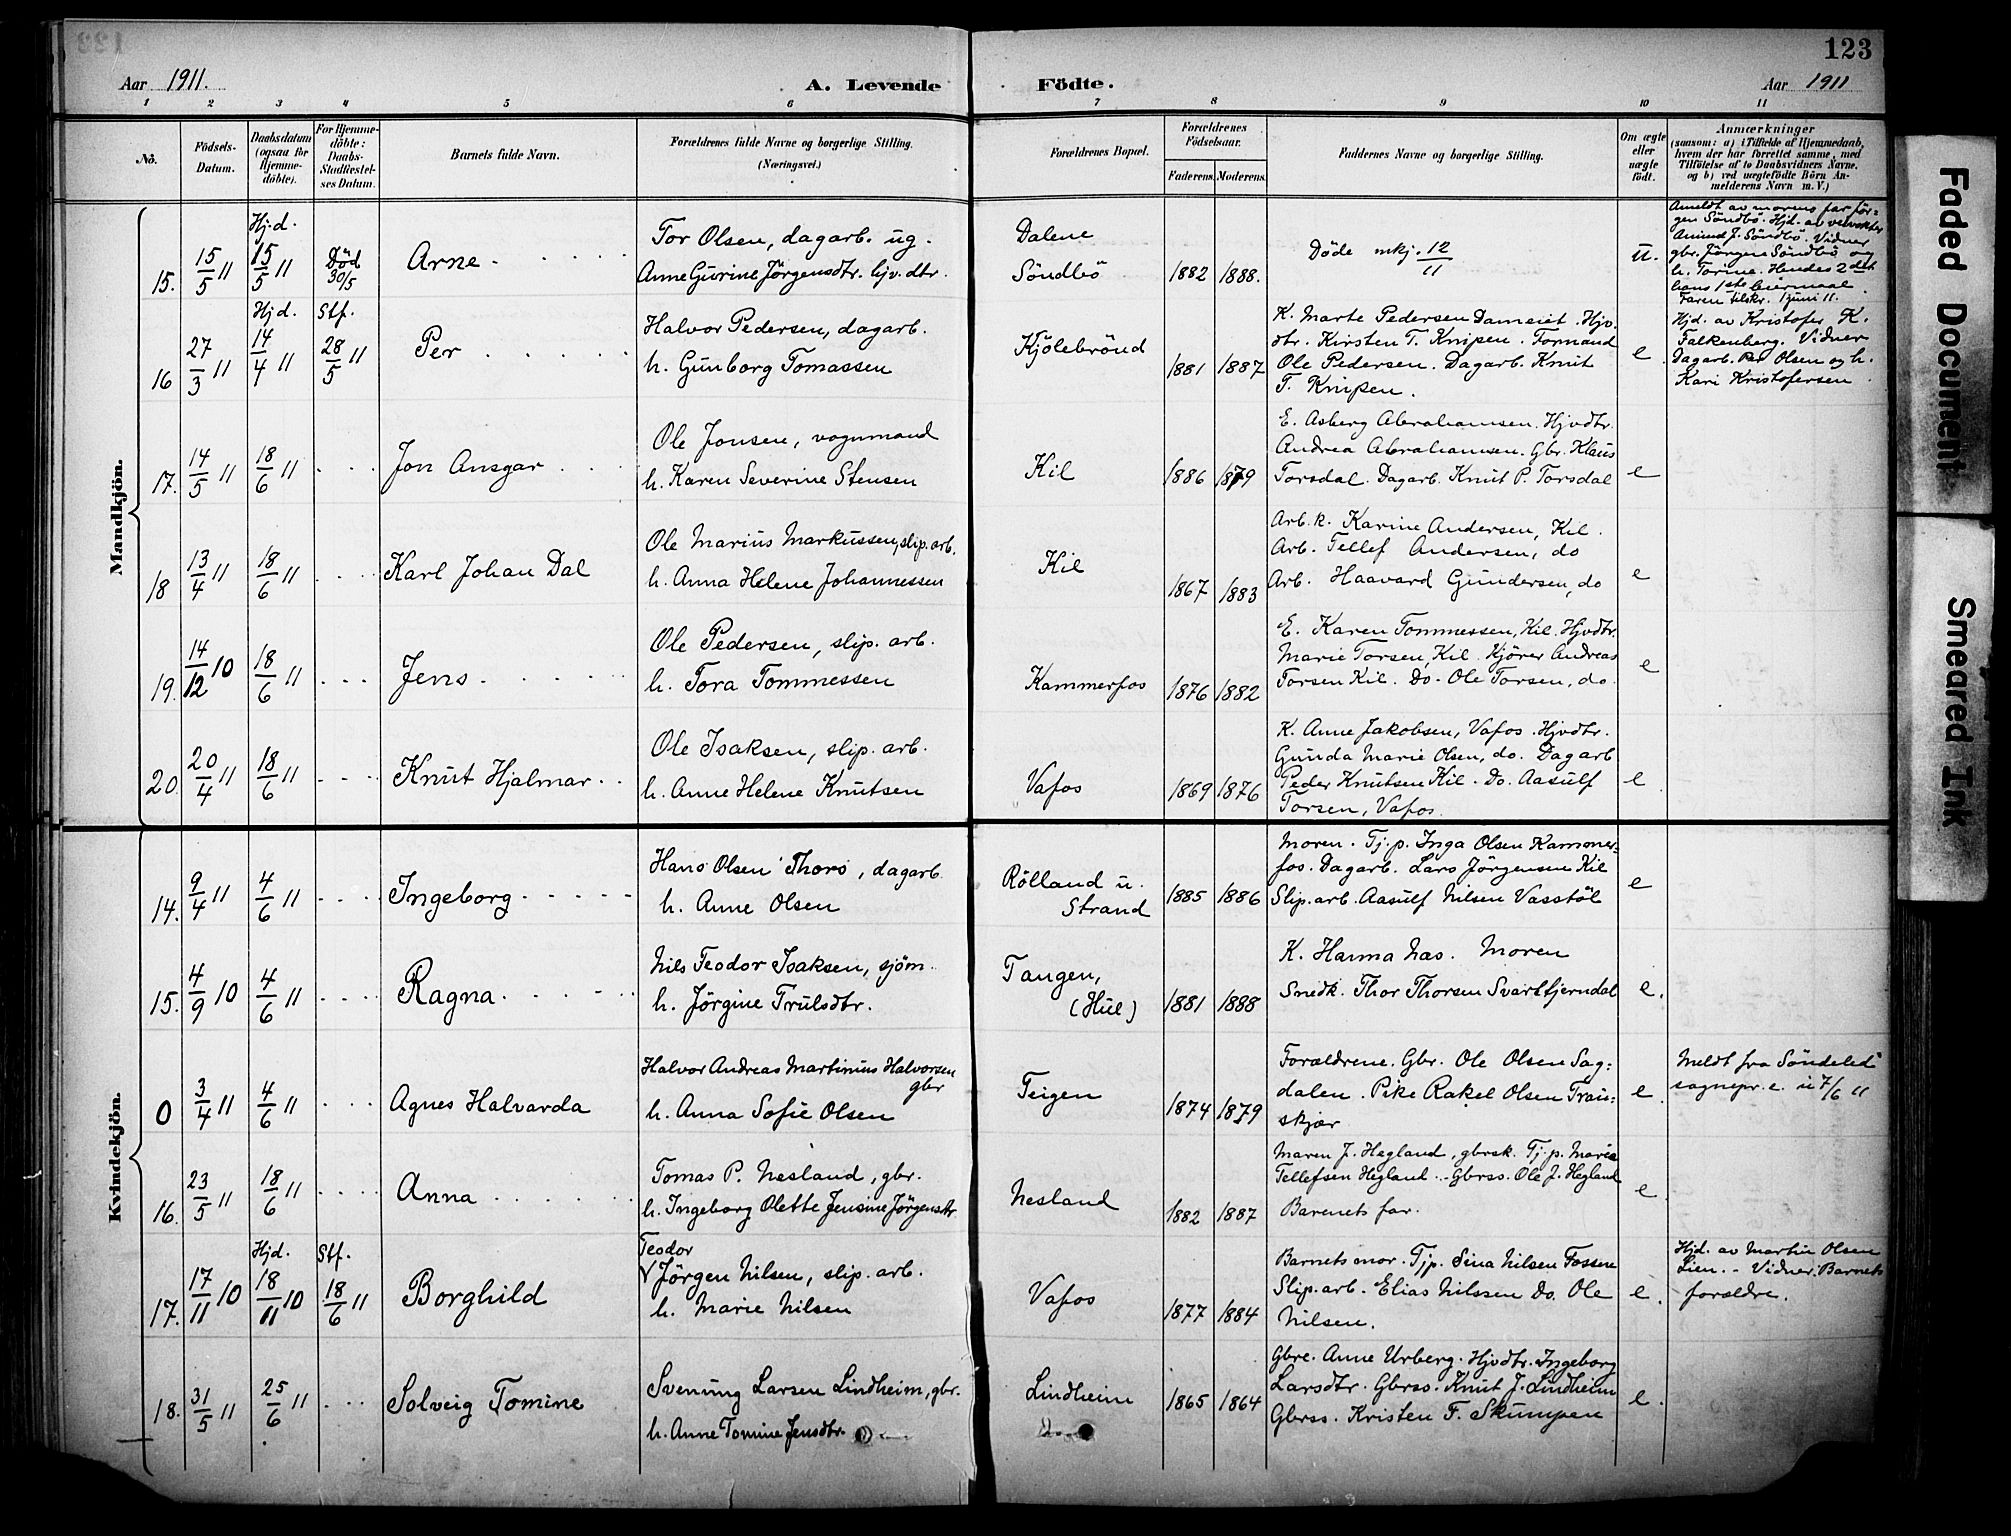 123
Aar 1911. A. Levende Födte. Aar 1911
1 2 3 4 5 6 7 8 9 10 11
No. Födsels-Datum. Daabsdatum (ogsaa for Hjemme-döbte). For Hjemme-döbte: Daabs-Stadfæstel-ses Datum. Barnets fulde Navn. Forældrenes fulde Navne og borgerlige Stilling. (Næringsvei.) Forældrenes Bopæl. Forældrenes Födselsaar. Faderens. Moderens. Faddernes Navne og borgerlige Stilling. Om ægte eller uægte födt. Anmærkninger (saasom: a) i Tilfælde af Hjemmedaab, hvem der har forrettet samme, med Tilföielse af to Daabsvidners Navne, og b) ved uægtefödte Börn An-melderens Navn m. V.)
Mandkjön.
15. 15/5 11 Hj.d. 15/5 11 Död 30/5 Arne
Tor Olsen, dagarb. ug.
Anne Gurine Jörgensdtr. hjv. dtr.
Dalene
Söndbö
1882 1888.
Döde mkj. 12/11
u.
Anmeldt av morens far Jör-
gen Söndbö. Hjd. av
Amund J. Söndbö. Vidner
gbr. Jörgen Söndbö og
h. Torine. Hendes 2det
hans 1ste leiermaal.
Faren tilskr. 1 juni 11.
16 27/3 11 Hjd. 14/4 11 Stf. 28/5 11 Per
Halvor Pedersen, dagarb.
h. Gunborg Tomassen
Kjölebrönd
1881 1887
K. Marte Pedersen Dameiet. Hjv.
dtr. Kirsten T. Knipen. Formand
Ole Pedersen. Dagarb. Knut
T. Knipen.
e
Hjd. av Kristofer K.
Falkenberg. Vidner
Dagarb. Per Olsen og h.
Kari Kristofersen.
17. 14/5 11 18/6 11 Jon Ansgar
Ole Jonsen, vognmand
h. Karen Severine Stensen
Kil
1886 1879
E. Asberg Abrahamsen. Hjvdtr.
Andrea Abrahamsen. Gbr. Klaus
Torsdal. Dagarb. Knut P. Torsdal
e
18 13/4 11 18/6 11 Karl Johan Dal
Ole Marius Markussen, slip. arb.
h. Anna Helene Johannessen
Kil
1867 1883
Arb. k. Karine Andersen, Kil.
Arb. Tellef Andersen, do
Arb. Haavard Gundersen, do
e
19. 14/12 10 18/6 11 Jens
Ole Pedersen, slip. arb.
h. Tora Tommessen
Kammerfos
1876 1882
E. Karen Tommessen, Kil. Hjvdtr.
Marie Torsen, Kil. Kjörer Andreas
Torsen Kil. Do. Ole Torsen, do.
e
20. 20/4 11 18/6 11 Knut Hjalmar
Ole Isaksen, slip. arb.
h. Anne Helene Knutsen
Vafos
1869 1876
K. Anne Jakobsen, Vafos. Hjvdtr.
Gunda Marie Olsen, do. Dagarb
Peder Knutsen Kil. Do. Aasulf
Torsen, Vafos.
e
Kvindekjön.
14. 9/4 11 4/6 11 Ingeborg
Hans Olsen Thors, dagarb.
h. Anne Olsen
Rölland u.
Strand
1885 1886
Moren. Tj. p. Inga Olsen Kammer-
fos. Dagarb. Lars Jörgensen Kil
Slip. arb. Aasulf Nilsen Vasstöl
e
15. 4/9 10 4/6 11 Ragna
Nils Teodor Isaksen, sjöm.
h. Jörgine Trulsdtr.
Tangen,
(Hull)
1881 1888
K. Hanna Næs. Moren
Smedk. Thor Thorsen Svartfjerndal
e.
0 3/4 11 4/6 11 Agnes Halvarda
Halvor Andreas Martinius Halvorsen
gbr
h. Anna Sofie Olsen
Teigen
1874 1879
Forældrene. Gbr. Ole Olsen Sag:
dalen. Pike Rakel Olsen Trau:
skjær
e.
Meldt fra Söndeled
sognepr. e. u 7/6 11
16. 23/5 11 18/6 11 Anna
Tomas P. Nesland, gbr.
h. Ingeborg Olette Jensine Jörgensdtr
Nesland
1882 1887
Maren J. Hegland, gbrsk. Tj. p. Maria
Tellefsen Hegland. Gbrss. Ole J. Hegland
Barnets far.
e.
17. 17/11 10 Hjd. 18/11 10 Stf. 18/6 11 Borghild
Teodor
Jörgen Nilsen, slip. arb.
h. Marie Nilsen
Vafos
1877 1884
Barnets mor. Tjp. Sina Nilsen Fossene
Slip. arb. Elias Nilssen Do. Ole
Nilsen.
e.
Hjd. av Martin Olsen
Lien. - Vidner: Barnets
forældre.
18. 31/5 11 25/6 11 Solveig Tomine
Svenung Larsen Lindheim, gbr.
h. Anne Tomine Jensdtr.
Lindheim
1865 1864
Gbre. Anne Urberg. Hjvdtr. Ingeborg
Larsdtr. Gbrss. Knut J. Lindheim
Gbrss. Kristen F. Skumpen
e.
Faded Document
Smeared Ink